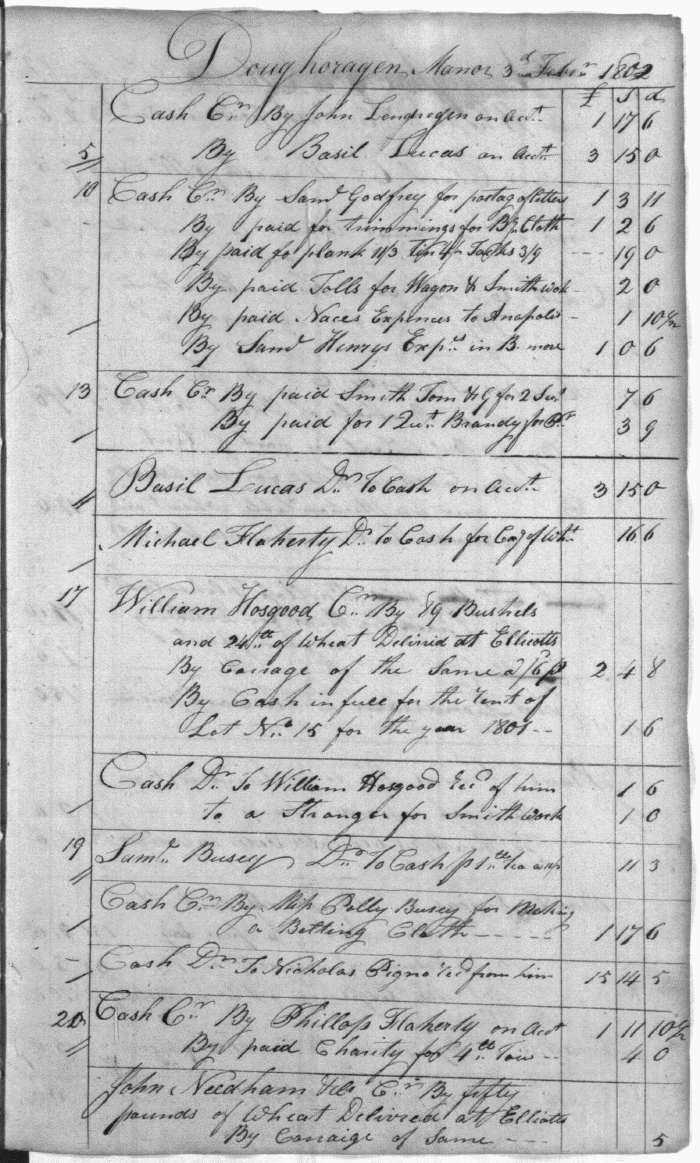 Doughoragen Manor 3d Febr 1802
£ s d
Cash Cr By John Lendregen on Acct 1 17 6
5 By Basil Lucas on Acct 3 15 0
10 Cash Cr By Saml Godfrey for postag of letters 1 3 11
By paid for trimmings for Cloth 1 2 6
By paid fo plank 11/3 Tacks 3/9 -- 19 0
By paid Tolls for Wagon & Smith work - 2 0
By paid Naces Expences to Anapolis - 1 10½
By Saml Henrys Exps in B. more 1 0 6
13 Cash Cr By paid Smith Tom for 2 7 6
By paid for 1 Qut Brandy for 3 9
Basil Lucas Dr To Cash on Acct 3 15 0
Michael Flaherty Dr to Cash for Cag of Wht 16 6
17 William Hosgood Cr By 89 Bushels
and 24 lb of Wheat Deliverd at Ellicotts
By Carrage of the Same 2 4 8
By Cash in full for the rent of
Lot No 15 for the year 1801 -- 1 6
Cash Dr To William Hosgood recd of him 1 6
to a Stranger for Smith work 1 0
19 Saml Busey Dr To Cash 11 3
Cash Cr By Miss Polly Busey for Making
a Bolting Cloth ----- 1 17 6
Cash Dr To Nicholas recd from him 15 14 5
20 Cash Cr By Phillop Flaherty on Act 1 11 10½
By paid Charity for 4 lb Tow -- 4 0
John Needham Cr By fifty
pounds of Wheat Delivred at Ellicotts
By Carraige of Same --- 5